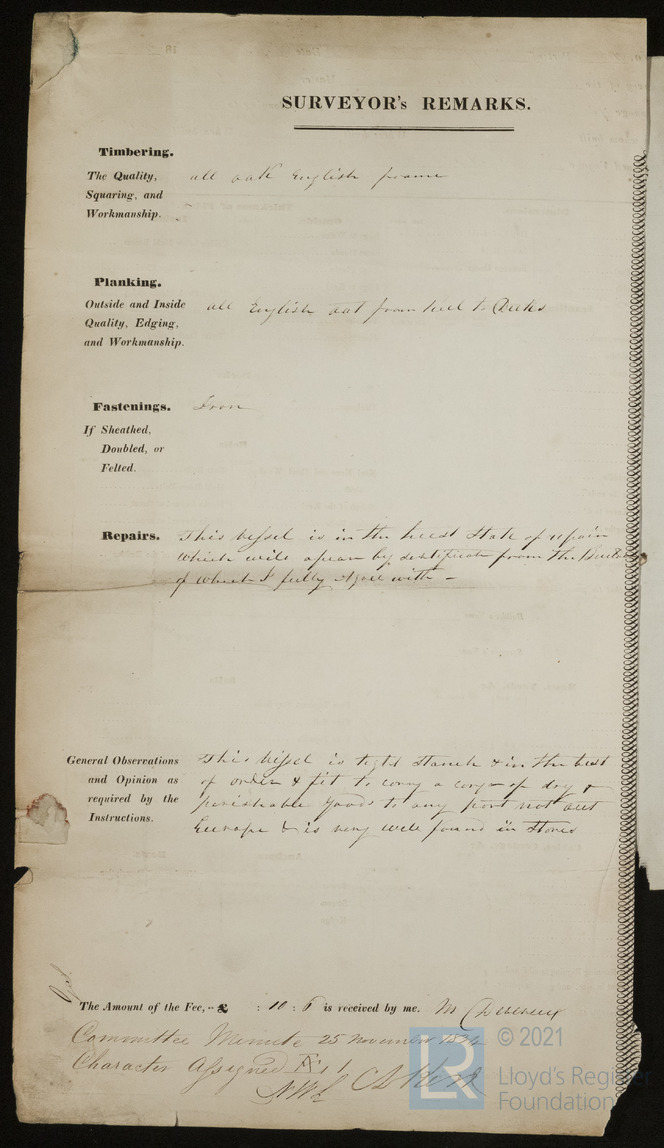 SURVEYOR's REMARKS.
Timbering.
The Quality, all oak English frame
Squaring, and
Workmanship.
Planking.
Outside and Inside all English oak from keel to Decks
Quality, Edging,
and Workmanship.
Fastenings. Iron
If Sheathed,
Doubled, or
Felted.
Repairs. This vessel is in the best State of repair
which will apear by sertificate from the
of which I fully agree with -
General Observations This vessel is tight staunch & in the best
and Opinion as of order & fit to carry a cargo of dry &
required by the perishable goods to any port not out
Instructions. Europe & is very well found in Stores
The Amount of the Fee, .. £ : 10 : 6 is received by me.
Committee Minute 25 November 1834
Character Assigned
© 2021
LR
Lloyd's Register
Foundation